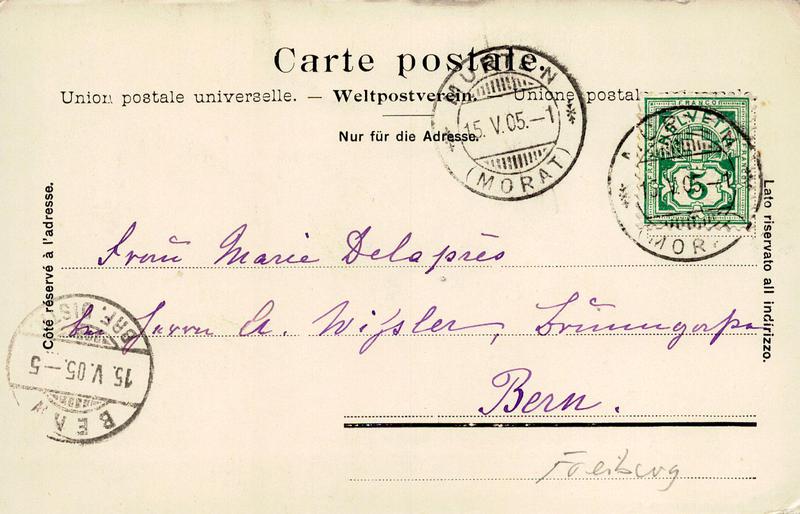 Carte postale.
Union postale universelle. — Weltpostverein. — Unione postale universale
Nur für die Adresse.
MURTEN
15. V. 05. – 1
(MORAT)
FRANCO
HELVETIA
5
15. V. 05. – 1
(MORAT)
Côté réservé à l'adresse.
Lato riservato all indirizzo.
Frau Marie Delaprès
Herrn A. Wißler,
Bern.
BERN
15. V. 05. – 5
BRF. DIS
Freiburg